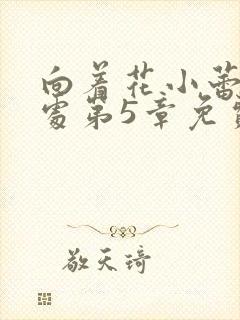 向着花小蕾
处第5章免费
敬天琦